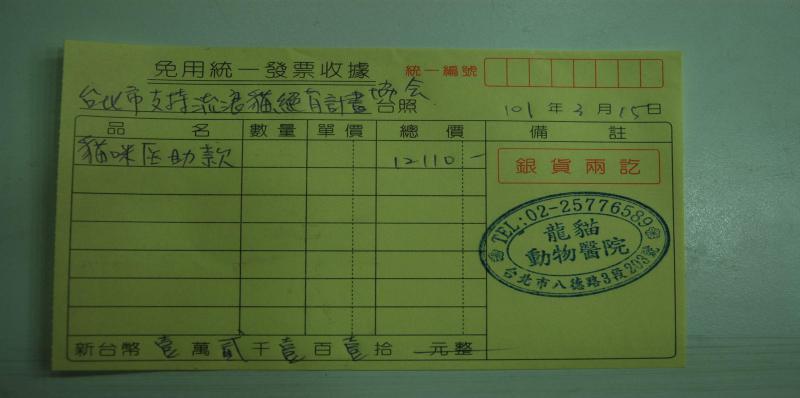 免用統一發票收據
統一編號
台北市支持流浪貓絕育計畫協會 台照
101 年 3 月 15 日
品名 數量 單價 總價 備註
貓咪醫助款 12110-
銀貨兩訖
TEL:02-25776589
龍貓
動物醫院
台北市八德路3段203號
新台幣 壹 萬 貳 千 壹 百 壹 拾 元整